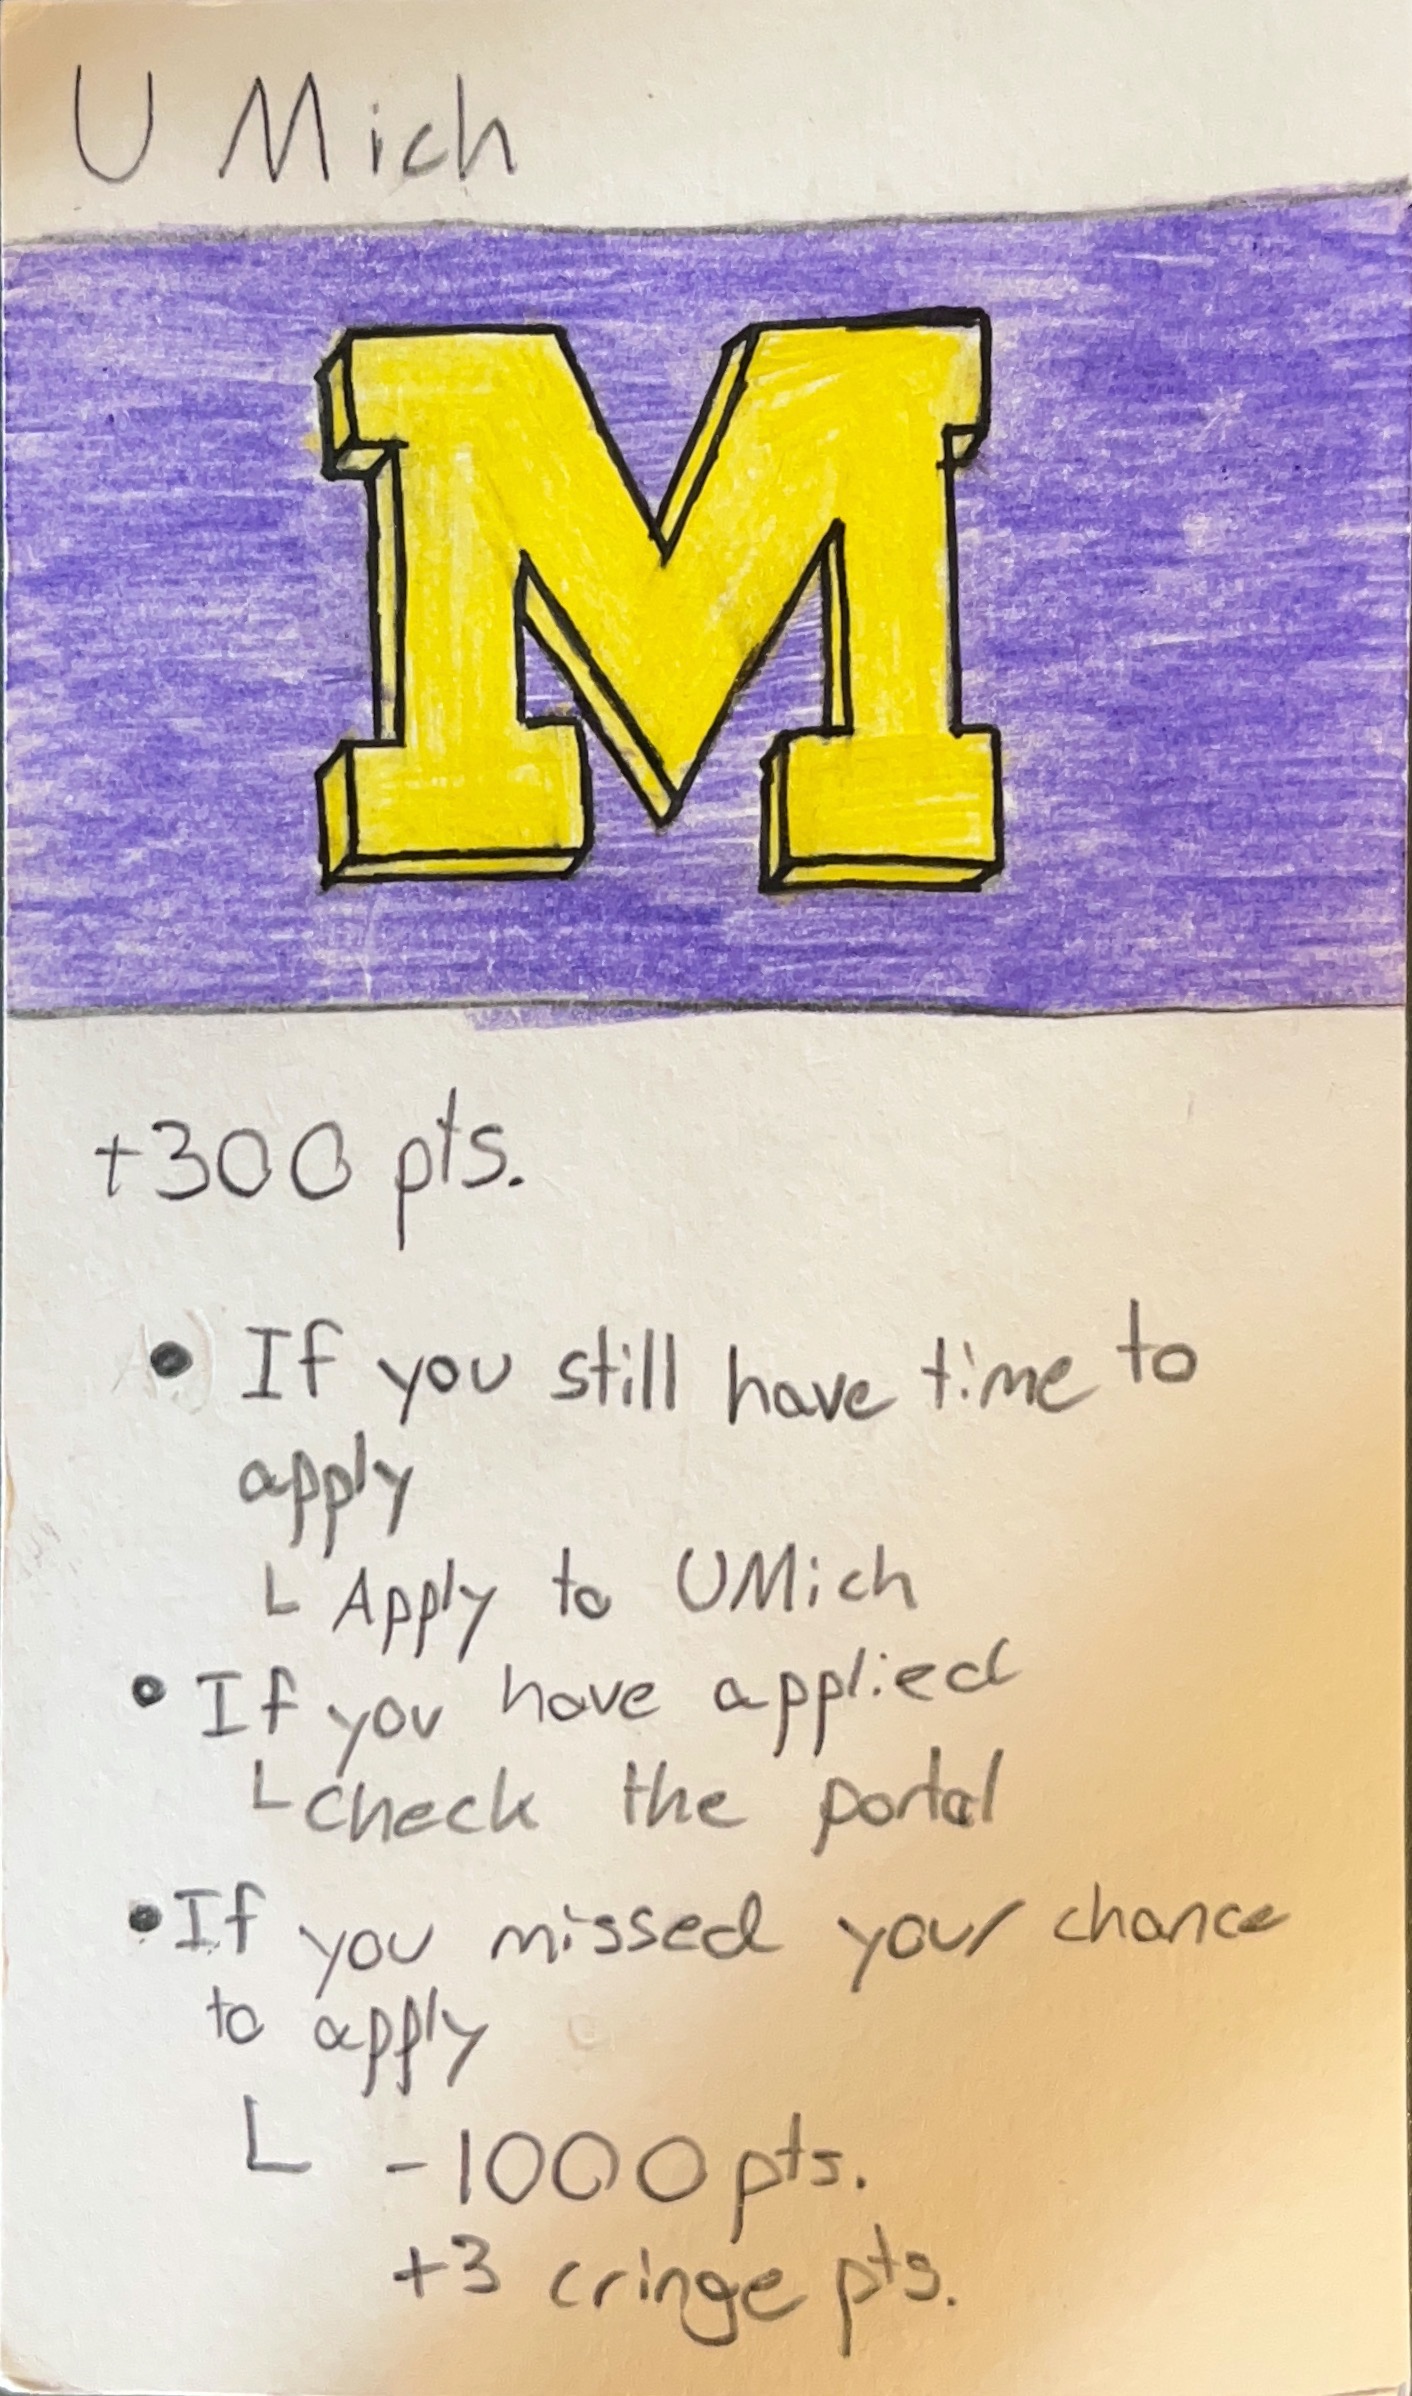 U Mich
M
+300 pts.
• If you still have time to
apply
L Apply to UMich
• If you have applied
L check the portal
• If you missed your chance
to apply
L -1000 pts.
+3 cringe pts.